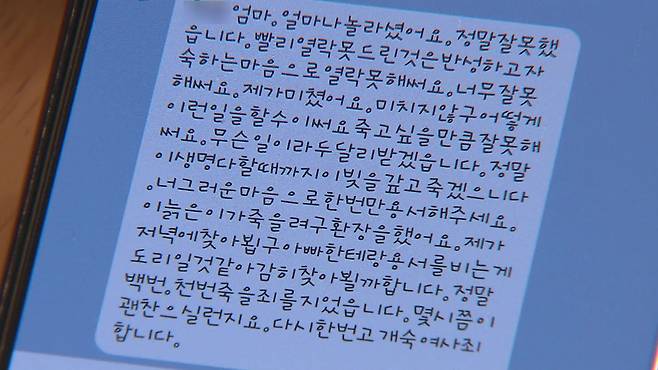 엄마.얼마나놀라셨어요.정말잘못했
읍니다.빨리열락못드린것은반성하고자
숙하는마음으로열락못해써요.너무잘못
해써요.제가미쳤어요.미치지않구어떻게
이런일을할수이써요죽고싶을만큼잘못해
써요.무슨일이라두달리받겠읍니다.정말
이생명다할때까지이빚을갚고죽겠으니다
.너그러운마음으로한번만용서해주세요.
이늙은이가죽을려구환장을했어요.제가
저녁에찾아뵙구아빠한테랑용서를비는게
도리일것같아감히찾아뵐까합니다.정말
백번.천번죽을죄를지었읍니다.몇시쯤이
괜찬으실런지요.다시한번고개숙여사죄
합니다.